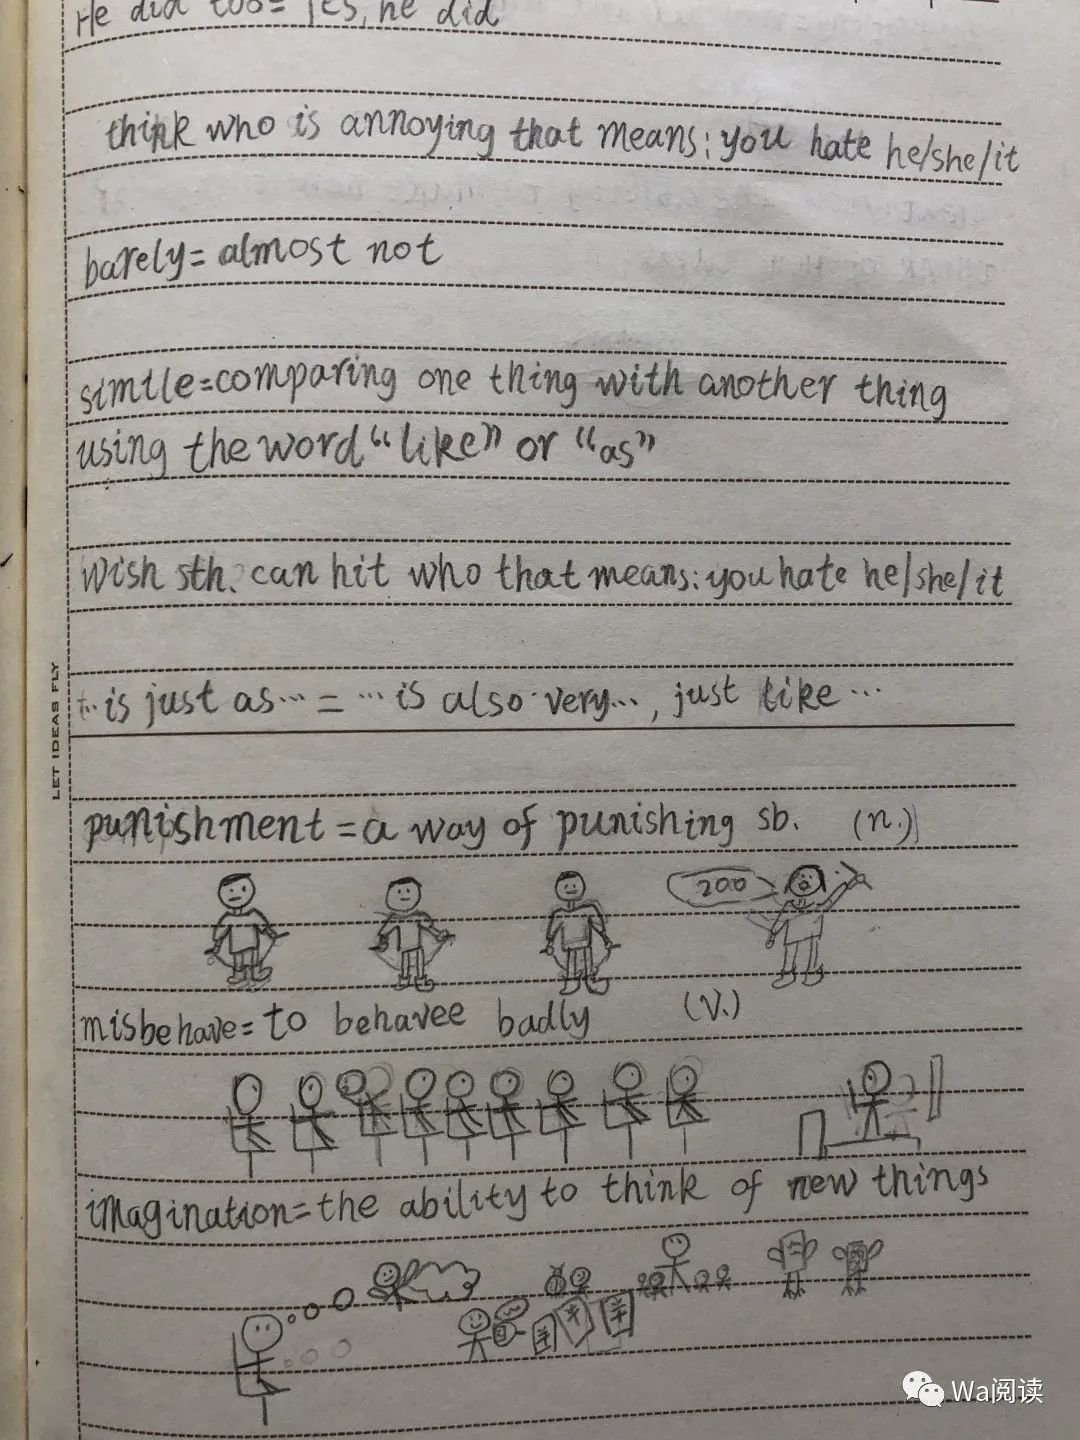 He did too= Yes, he did
think who is annoying that means: you hate he/she/it
barely= almost not
simile=comparing one thing with another thing
using the word “like” or “as”
Wish sth. can hit who that means: you hate he/she/it
... is just as... = ... is also very..., just like ...
punishment = a way of punishing sb. (n.)
200
misbehave= to behavee badly (V.)
imagination= the ability to think of new things
LET IDEAS FLY
Wa阅读